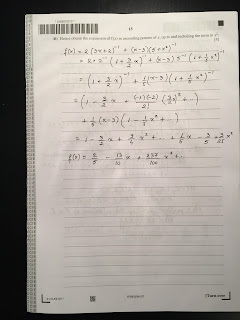 15
(ii) Hence obtain the expansion of f(x) in ascending powers of x, up to and including the term in x². [5]
f(x) = 2(3x+2)⁻¹ + (x-3)(5+x²)⁻¹
= 2×2⁻¹(1+3/2 x)⁻¹ + (x-3) 5⁻¹(1+1/5 x²)⁻¹
= (1+3/2 x)⁻¹ + 1/5(x-3)(1+1/5 x²)⁻¹
= (1 - 3/2 x + (-1)(-2)/2! (3/2 x)² + ..)
+ 1/5 (x-3) (1 - 1/5 x² + ..)
= 1 - 3/2 x + 9/4 x² + .. + 1/5 x - 3/5 + 3/25 x²
f(x) = 2/5 - 13/10 x + 237/100 x² + ..
[Turn over